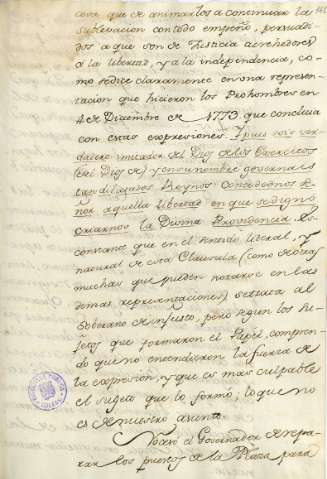 cosa que se animarlos a continuar la
sublevacion con todo empeño, persuadi-
dos a que son de Justicia acrehedores
a la libertad, y a la independencia, co-
mo se dice claramente en una represen-
tacion que hicieron los Prohombres en
4 de Diciembre de 1773 que concluia
con estas expresiones. I pues sois ver-
dadero imitador del Dios de los Exercitos
(el Dios de) y en su nombre governais
tan dilatados Reynos concedednos Se-
ñor aquella libertad en que se dignó
criarnos la Divina Providencia. Es
constante que en el sentido literal, y
natural de esta Clausula (como de otras
muchas que pueden notarse en las
demas representaciones) se trata al
Soberano de injusto, pero segun los su-
getos que formaron el Papel, compren-
do que no entendieron la fuerza de
la expresion, y que es mas culpable
el sugeto que lo formó, lo que no
es de nuestro asunto.
el Governador de repa-
rar los puestos de la Plaza para